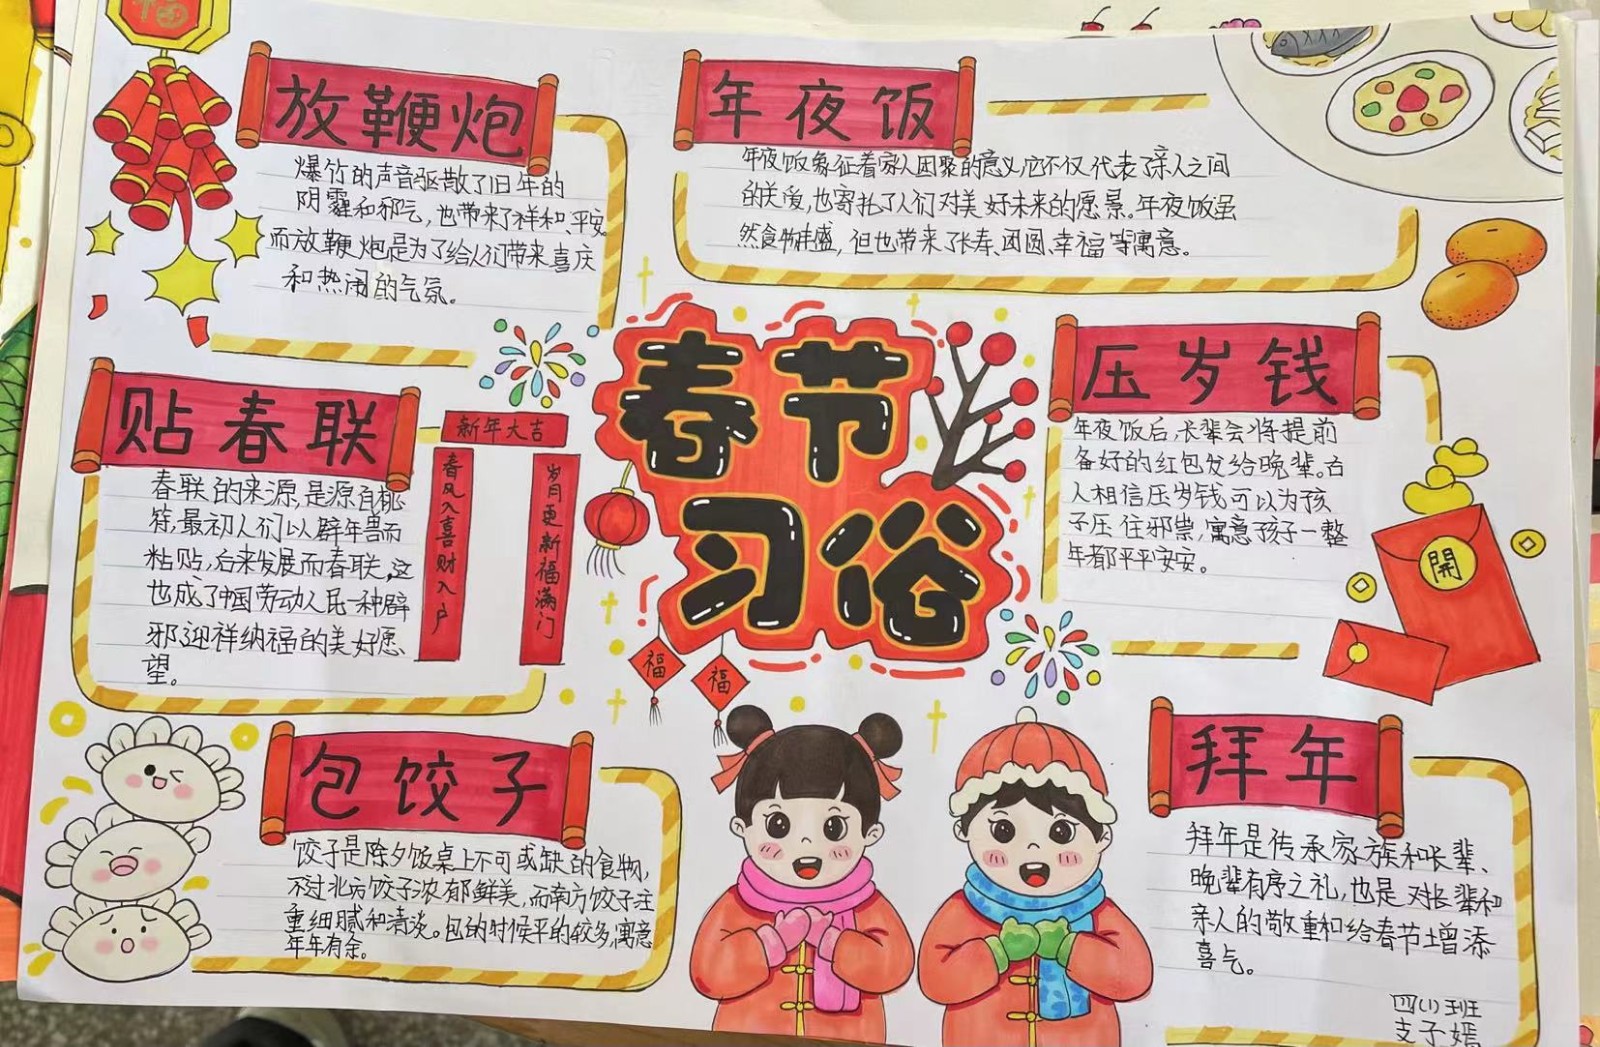 福
放鞭炮
爆竹的声音驱散了旧年的
阴霾和邪气,也带来了祥和、平安
而放鞭炮是为了给人们带来喜庆
和热闹的气氛。
年夜饭
年夜饭象征着家人团聚的意义,它不仅代表了亲人之间
的关爱,也寄托了人们对美好未来的愿景。年夜饭虽
然食物丰盛,但也带来了长寿、团圆、幸福等寓意。
贴春联
春联的来源,是源自桃
符,最初人们以辟年兽而
粘贴,后来发展而春联,这
也成了中国劳动人民一种辟
邪迎祥纳福的美好愿
望。
新年大吉
春风入喜财入户
岁月更新福满门
春节
习俗
福
福
压岁钱
年夜饭后,长辈会将提前
备好的红包发给晚辈。古
人相信压岁钱可以为孩
子压住邪祟,寓意孩子一整
年都平平安安。
開
包饺子
饺子是除夕饭桌上不可或缺的食物,
不过北方饺子浓郁鲜美,而南方饺子注
重细腻和清淡。包的时候平的较多,寓意
年年有余。
拜年
拜年是传承家族和长辈、
晚辈有序之礼,也是对长辈和
亲人的敬重和给春节增添
喜气。
四(1)班
支子嫣